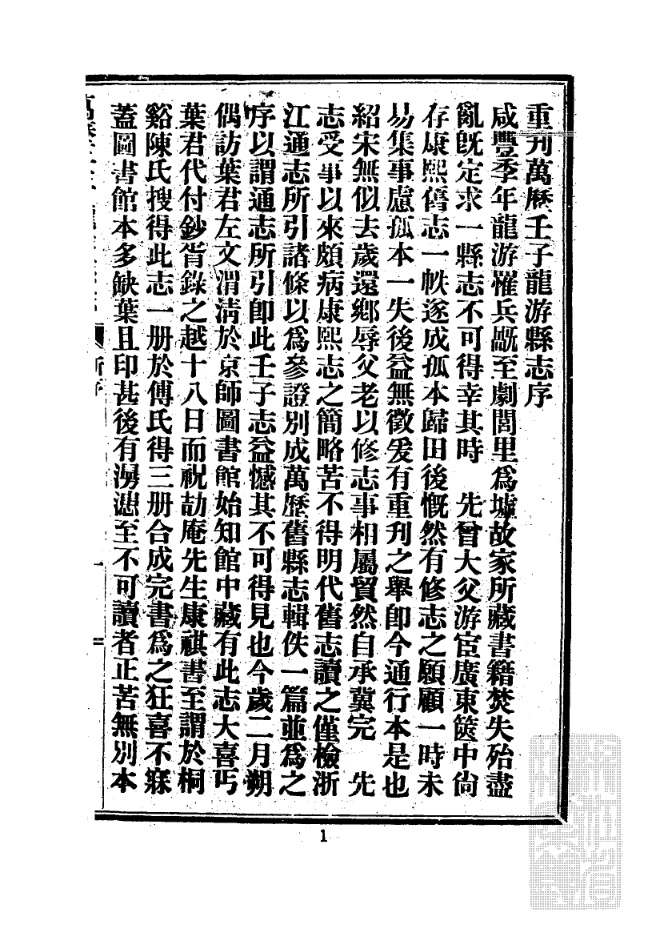 重刊萬歷壬子龍游縣志序
咸豐季年龍游罹兵厩至劇閭里爲墟故家所藏書籍焚失殆盡
亂旣定求一縣志不可得幸其時　先曾大父游宦廣東篋中尙
存康熙舊志一帙遂成孤本歸田後慨然有修志之願顧一時未
易集事慮孤本一失後益無徵爰有重刊之舉卽今通行本是也
紹宋無似去歲還鄉辱父老以修志事相屬貿然自承冀完　先
志受事以來頗病康熙志之簡略苦不得明代舊志讀之僅檢浙
江通志所引諸條以爲參證別成萬歷舊縣志輯佚一篇並爲之
序以謂通志所引卽此壬子志益憾其不可得見也今歲二月朔
偶訪葉君左文渭淸於京師圖書館始知館中藏有此志大喜丐
葉君代付鈔胥錄之越十八日而祝劼庵先生康祺書至謂於桐
谿陳氏搜得此志一册於傅氏得三册合成完書爲之狂喜不寐
蓋圖書館本多缺葉且印甚後有漫漶至不可讀者正苦無別本
新序
1